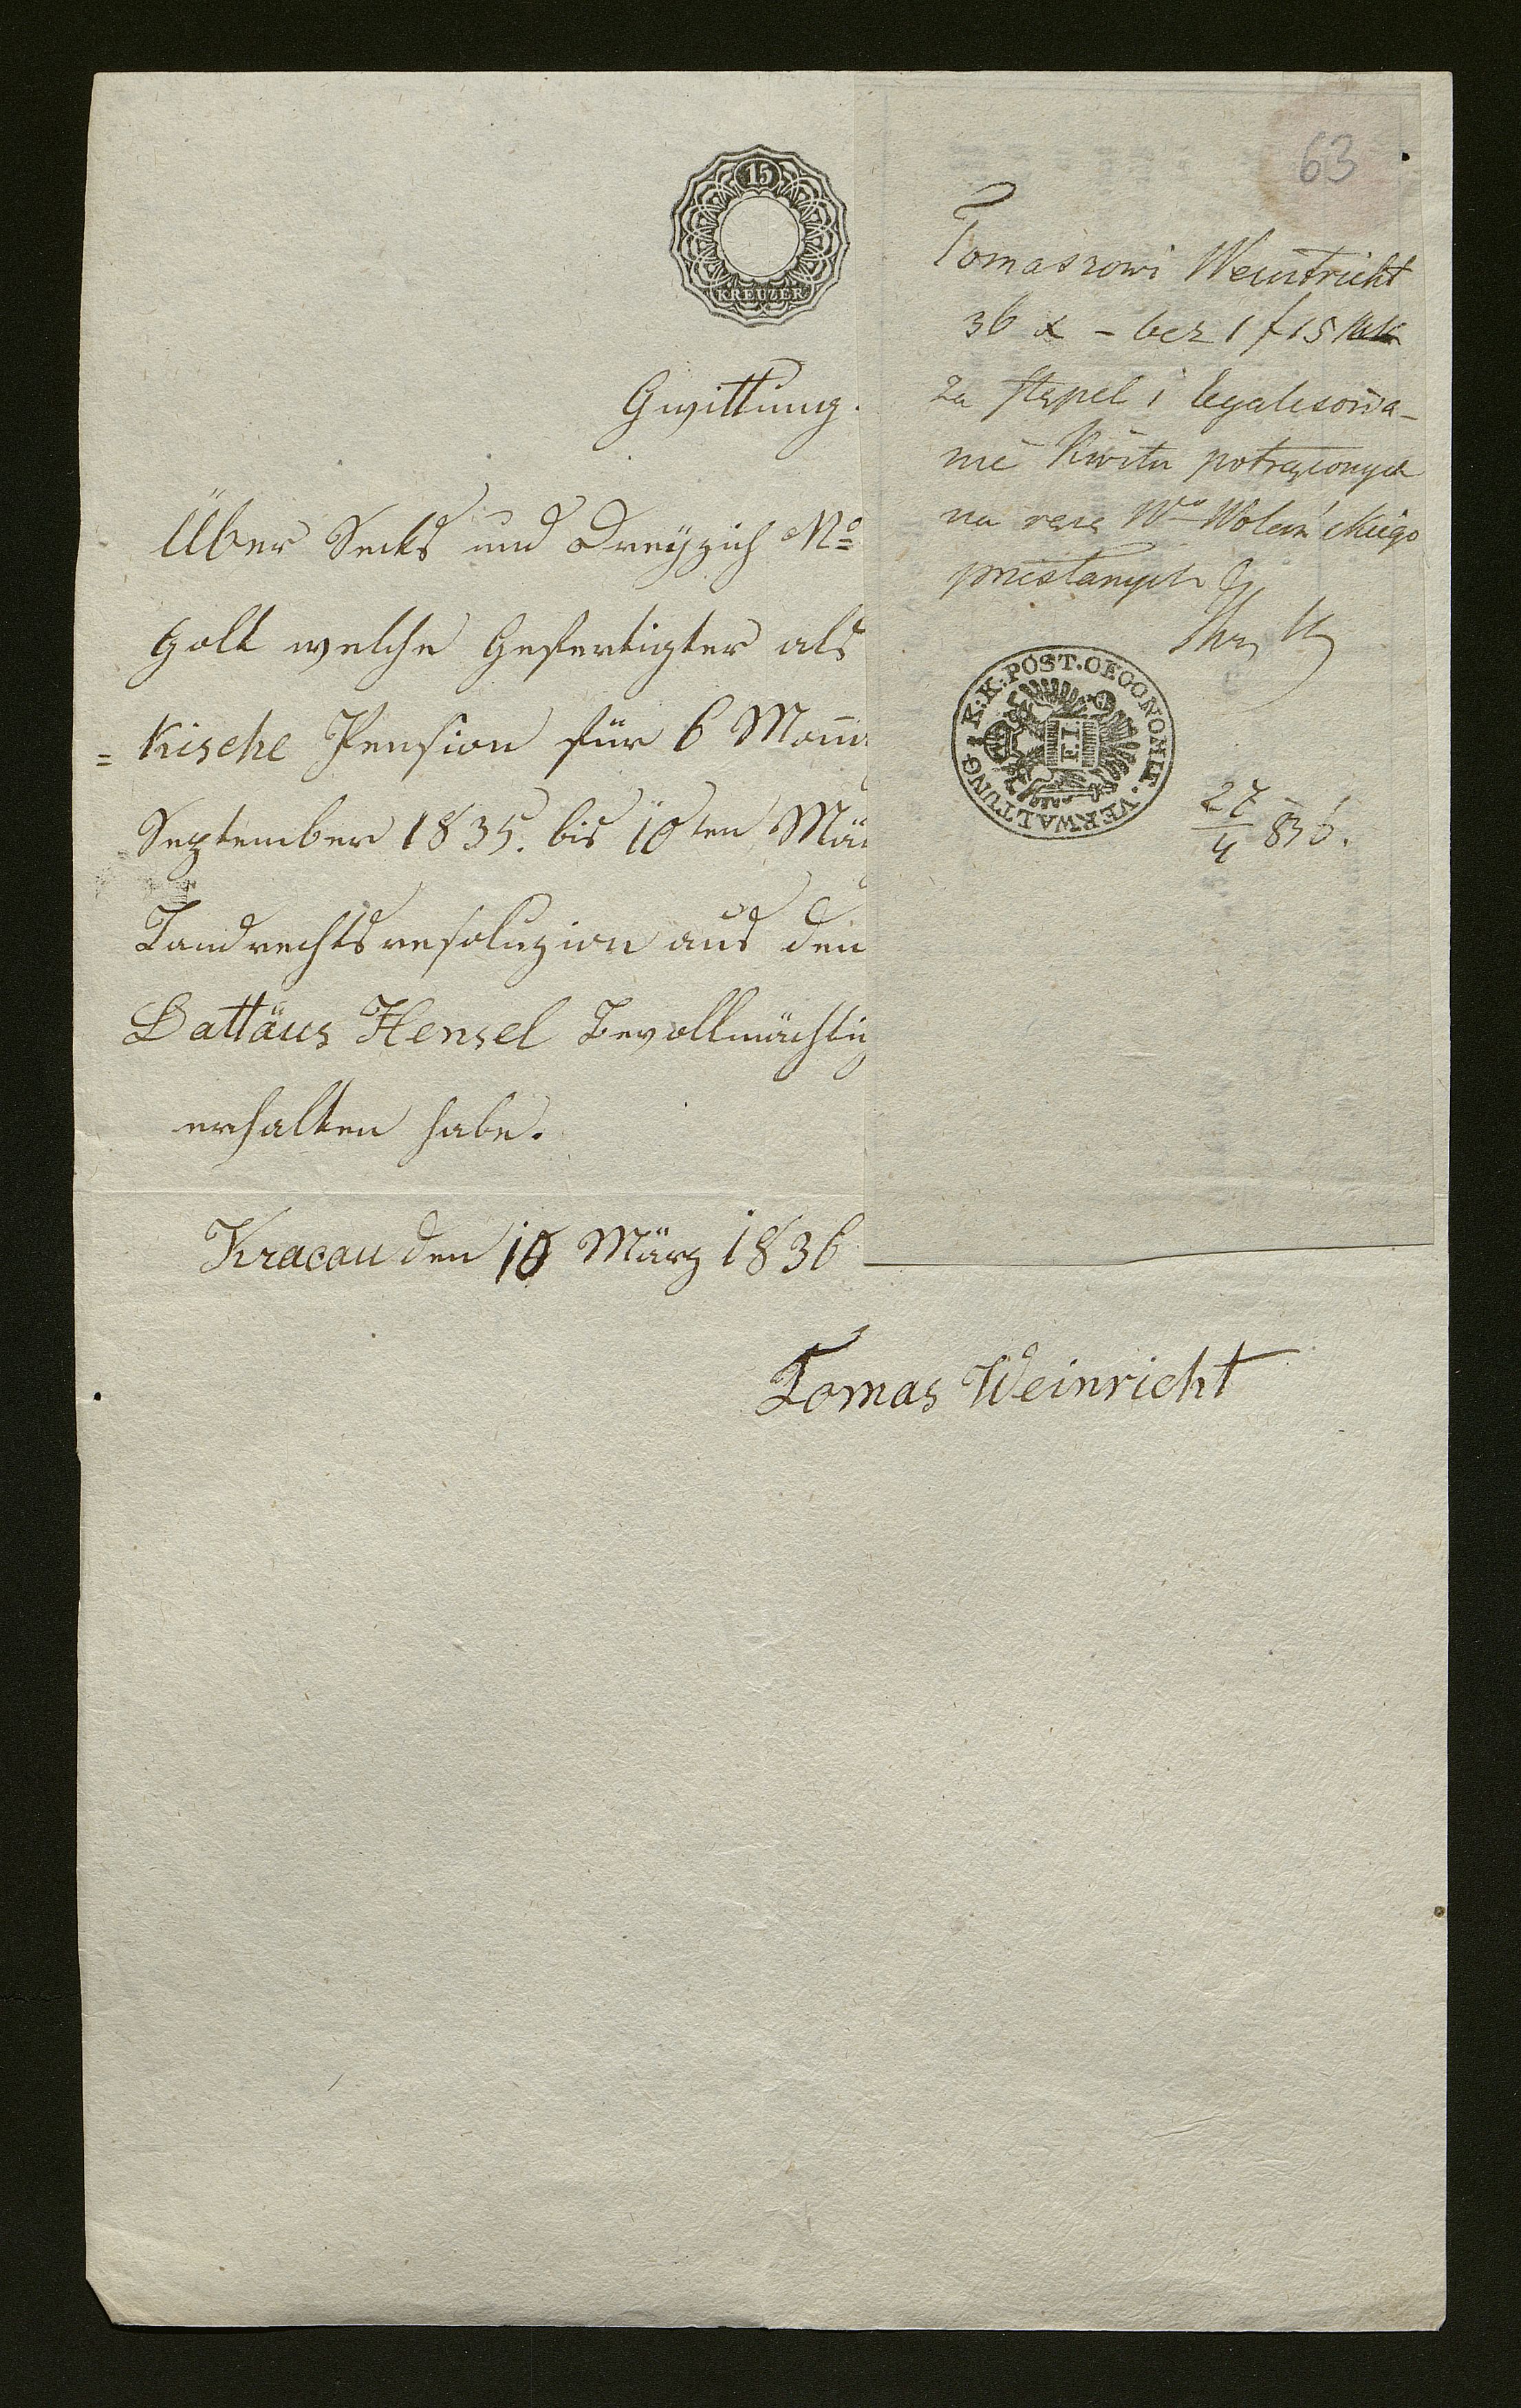 15
KREUZER
Gvittung.
Über Secks und Dreyzich No
Golt welche Gefertigter als
= kische Pension für 6 Mon
September 1835. bis 10ten Mär
Landrechtsresoluzion aus den
Dattäus Hensel Bevollmächtig
erhalten habe.
Kracau den 10 März 1836
Tomas Weinricht
63
Tomaszowi Weintricht
36 x - bez 1 f 15
za stępel i legalisowa-
nie kwitu potrąconych
na ręce Wo
przesłanych
K: K: POST. OECONOMIE. VERWALTUNG
F.I.
27/4 836.